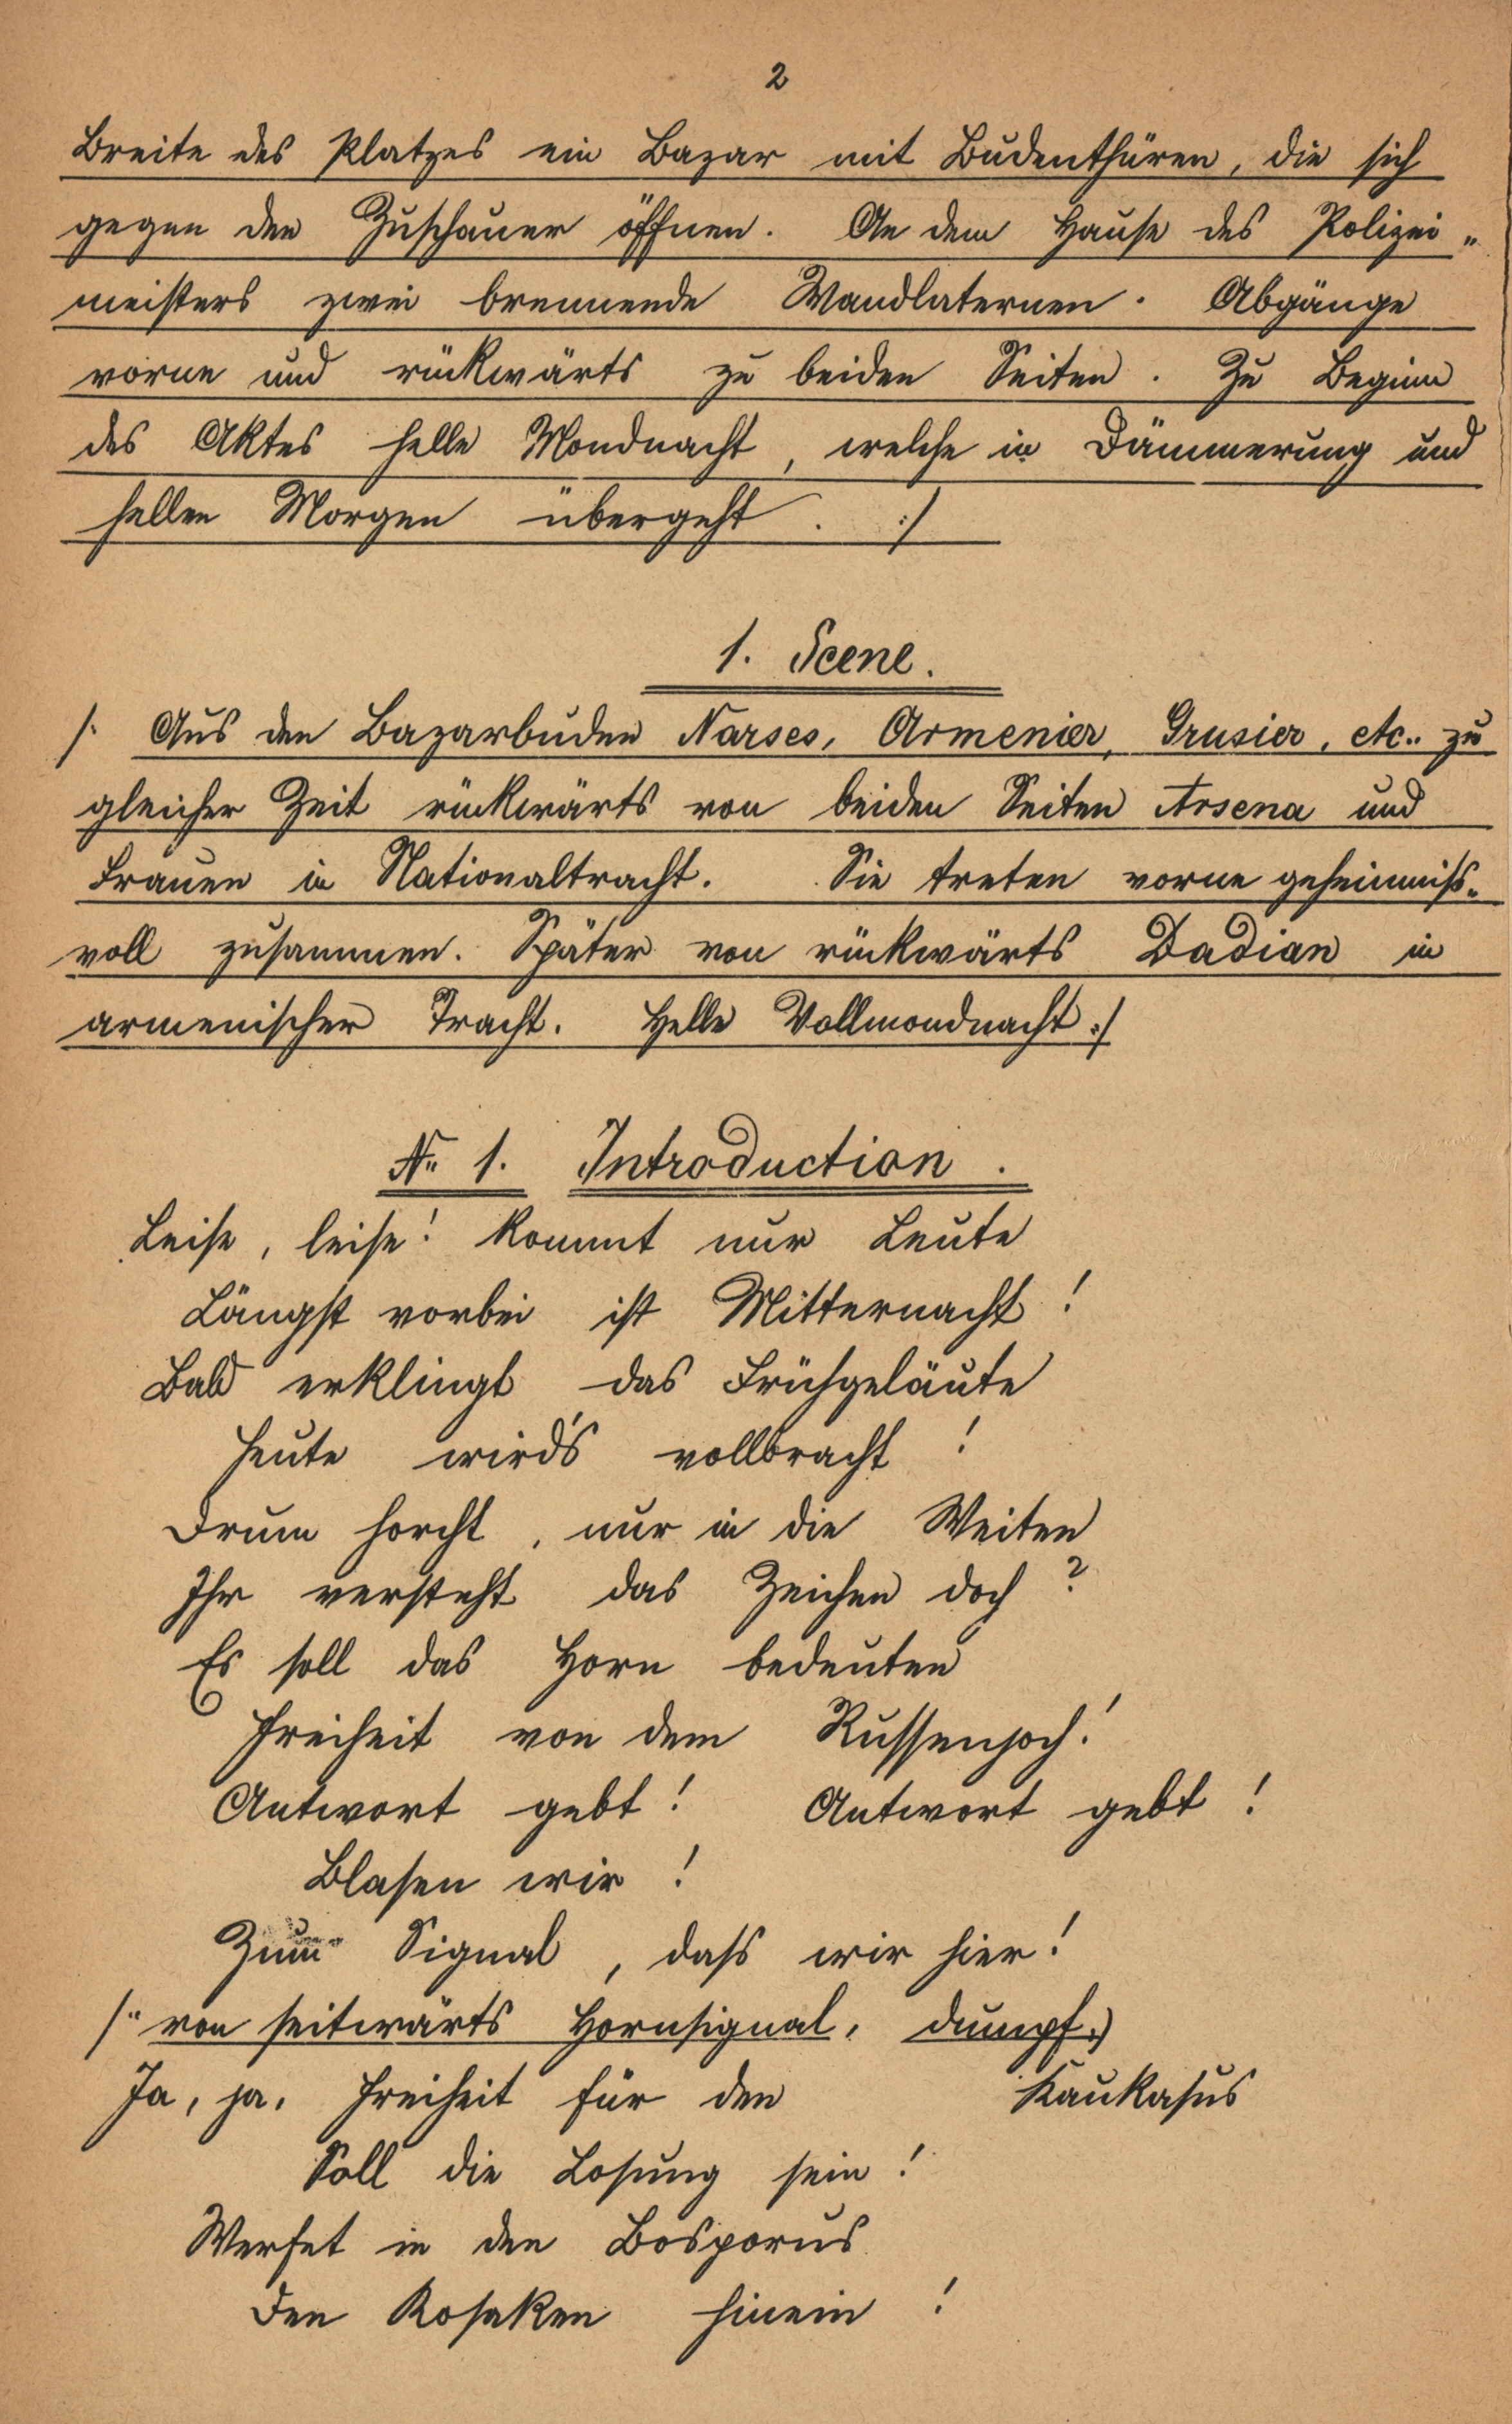 2
Breite des Platzes ein Bazar mit Budenthüren, die sich
gegen den Zuschauer öffnen. An dem Hause des Polizei„
meisters zwei brennende Wandlaternen. Abgänge
vorne und rückwärts zu beiden Seiten. Zu Beginn
des Aktes helle Mondnacht, welche in Dämmerung und
hellen Morgen übergeht. :/
1. Scene.
/: Aus den Bazarbuden Narses, Armenier, Grusier, etc.. zu
gleicher Zeit rückwärts von beiden Seiten Arsena und
Frauen in Nationaltracht. Sie treten vorne geheimniß„
voll zusammen. Später von rückwärts Dadian in
armenischer Tracht. Helle Vollmondnacht :/
No 1. Introduction.
Leise, leise! kommt nur Leute
Längst vorbei ist Mitternacht!
Bald erklingt das Frühgeläute
Heute wird's vollbracht!
Drum horcht, nur in die Weiten
Ihr versteht das Zeichen doch?
Es soll das Horn bedeuten
Freiheit von dem Russenjoch!
Antwort gebt! Antwort gebt!
Blasen wir!
Zum Signal, dass wir hier!
/: von seitwärts Hornsignal, dumpf.)
Ja, ja, Freiheit für den Kaukasus
Soll die Losung sein!
Werfet in den Bosporus
Den Kosaken hinein!